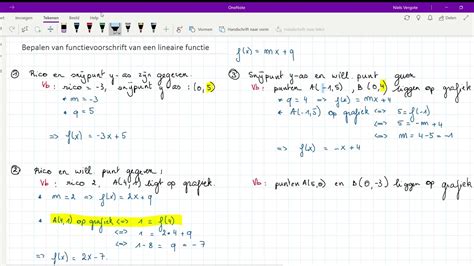 OneNote
Niels Vergote
Bestand
Tekenen
Weergave
Handschrift naar vorm
Bepalen van functievoorschrift van een lineaire functie
f(x) = mx + q
① Rico en snijpunt y-as zijn gegeven.
Vb: rico = -3, snijpunt y-as : (0, 5)
* m = -3
* q = 5
=> f(x) = -3x + 5
② Rico en will. punt gegeven:
Vb: rico 2, A(4,1) ligt op grafiek.
* m = 2 => f(x) = 2x + q
* A(4,1) op grafiek <=> 1 = f(4)
<=> 1 = 2•4 + q
<=> 1-8 = q = -7
=> f(x) = 2x - 7.
③ Snijpunt y-as en will. punt gegeven
Vb: punten A(-1, 5), B(0,4) liggen op grafiek
* q = 4 => f(x) = mx + 4
* A(-1,5) op grafiek <=> 5 = f(-1)
<=> 5 = -m + 4
<=> m = 4-5 = -1
=> f(x) = -x + 4
Vb: punten A(5,0) en B(0,-3) liggen op grafiek